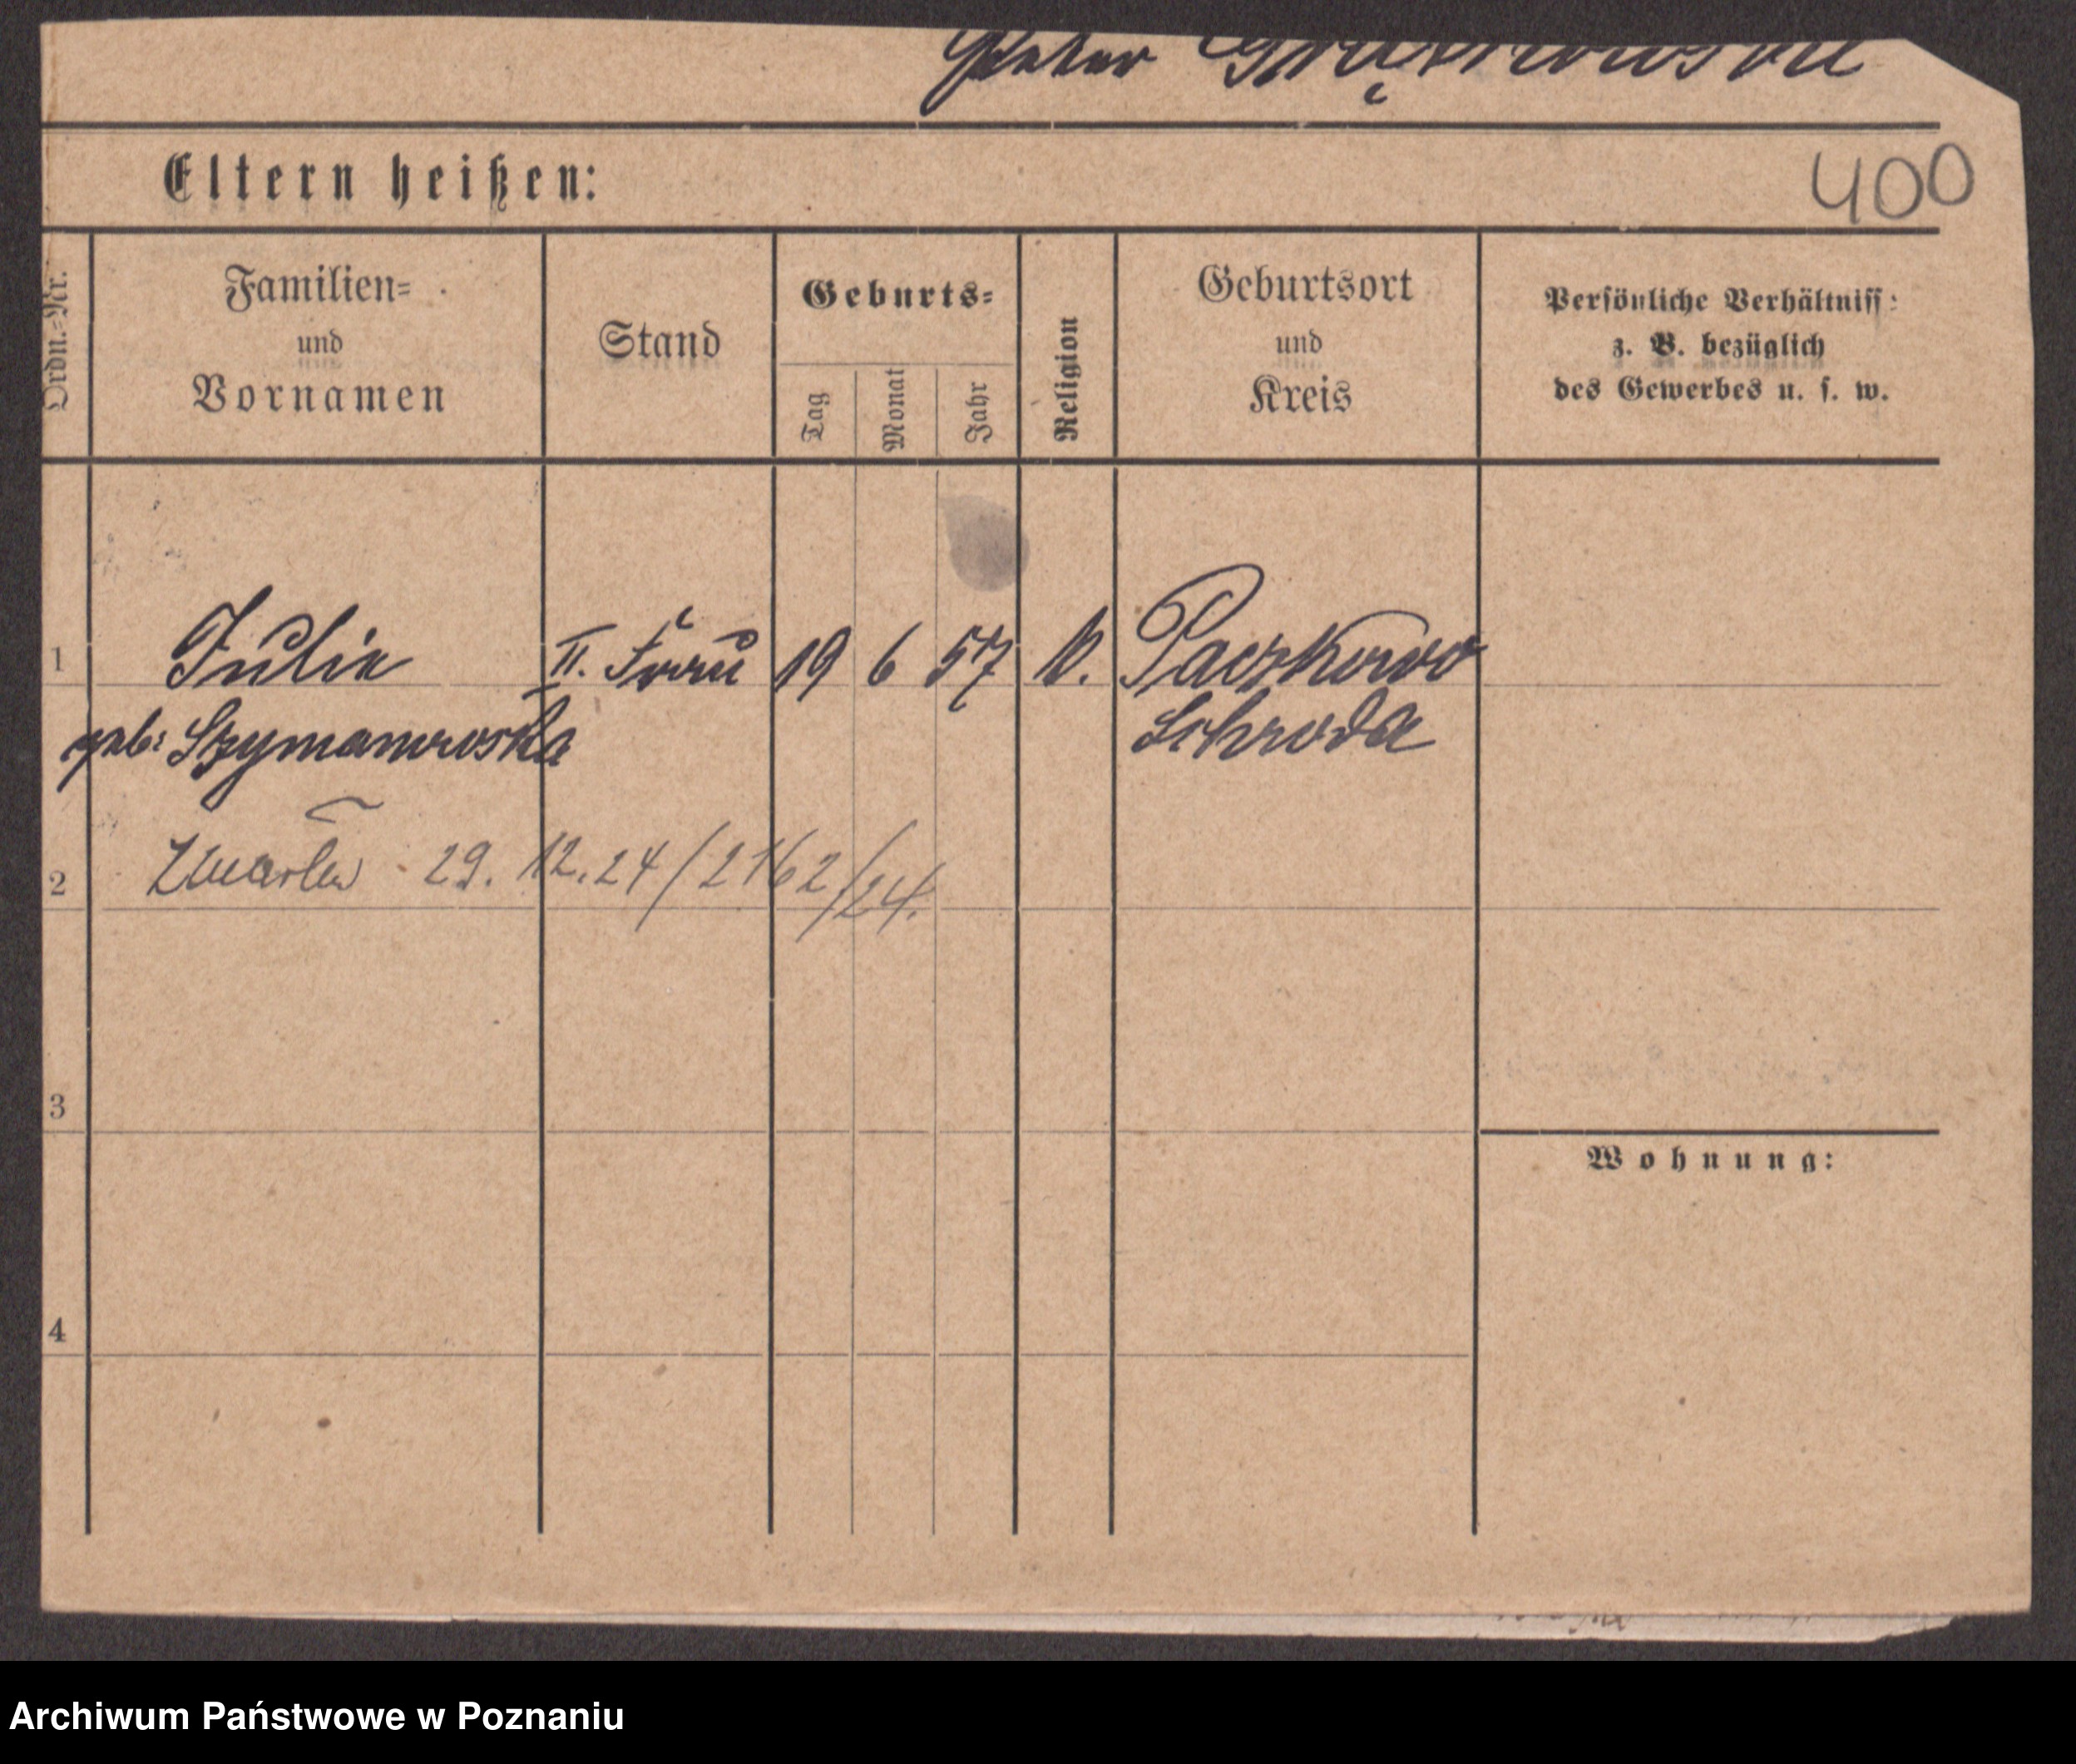 Peter
Eltern heißen:
400
Ordn.=Nr.
Familien=
und
Vornamen
Stand
Geburts=
Tag
Monat
Jahr
Religion
Geburtsort
und
Kreis
Persönliche Verhältniss:
z. B. bezüglich
des Gewerbes u. s. w.
1 Julie II. Frau 19 6 57 k. Paczkowo
geb: Szymanowska Schroda
2 Zmarła 29.12.24/2162/24.
3
Wohnung:
4
Archiwum Państwowe w Poznaniu